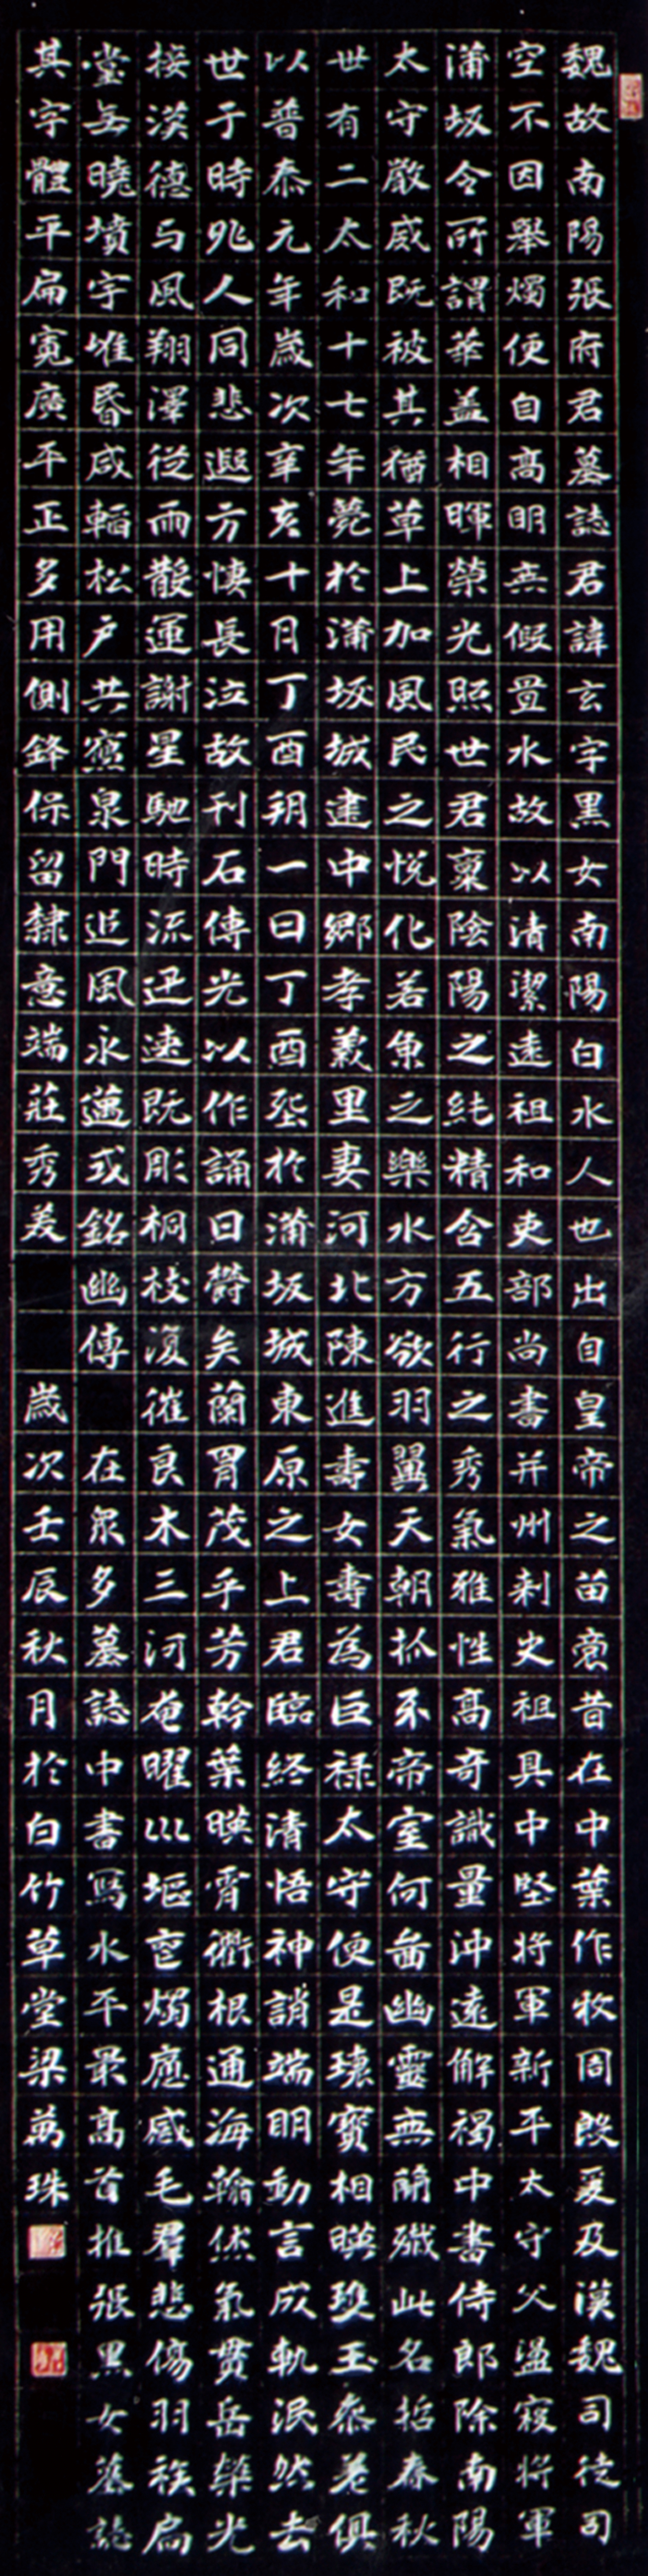 魏故南陽張府君墓誌君諱玄字黑女南陽白水人也出自皇帝之苗裔昔在中葉作牧周殷爰及漢魏司徒司
空不因舉燭便自高明無假置水故以清潔遠祖和吏部尚書并州刺史祖具中堅將軍新平太守父盪寇將軍
蒲坂令所謂華盖相暉榮光照世君稟陰陽之純精含五行之秀氣雅性高奇識量沖遠解褐中書侍郎除南陽
太守嚴威既被其猶草上加風民之悅化若魚之樂水方欲羽翼天朝抓牙帝室何啚幽靈無簡殲此名哲春秋
世有二太和十七年薨於蒲坂城建中鄉孝義里妻河北陳進壽女壽為巨祿太守便是瓌寶相暎瓊玉叅差俱
以普泰元年歲次辛亥十月丁酉朔一日丁酉塟於蒲坂城東原之上君臨終清悟神誚端明動言成軌泯然去
世于時兆人同悲遐方悽長泣故刊石傳光以作誦曰鬱矣蘭胃茂乎芳幹葉暎霄衢根通海翰然氣貫岳榮光
接漢德与風翔澤從雨散運謝星馳時流迅速既彫桐枝復摧良木三河奄曜川堀㝎燭廳感毛羣悲傷羽族扃
堂無曉墳宇唯昏咸輼松戶共寢泉門追風永邁或銘幽傳 在眾多墓誌中書寫水平最高首推張黑女墓誌
其字體平扁寬廣平正多用側鋒保留隸意端莊秀美 歲次壬辰秋月於白竹草堂梁萬珠